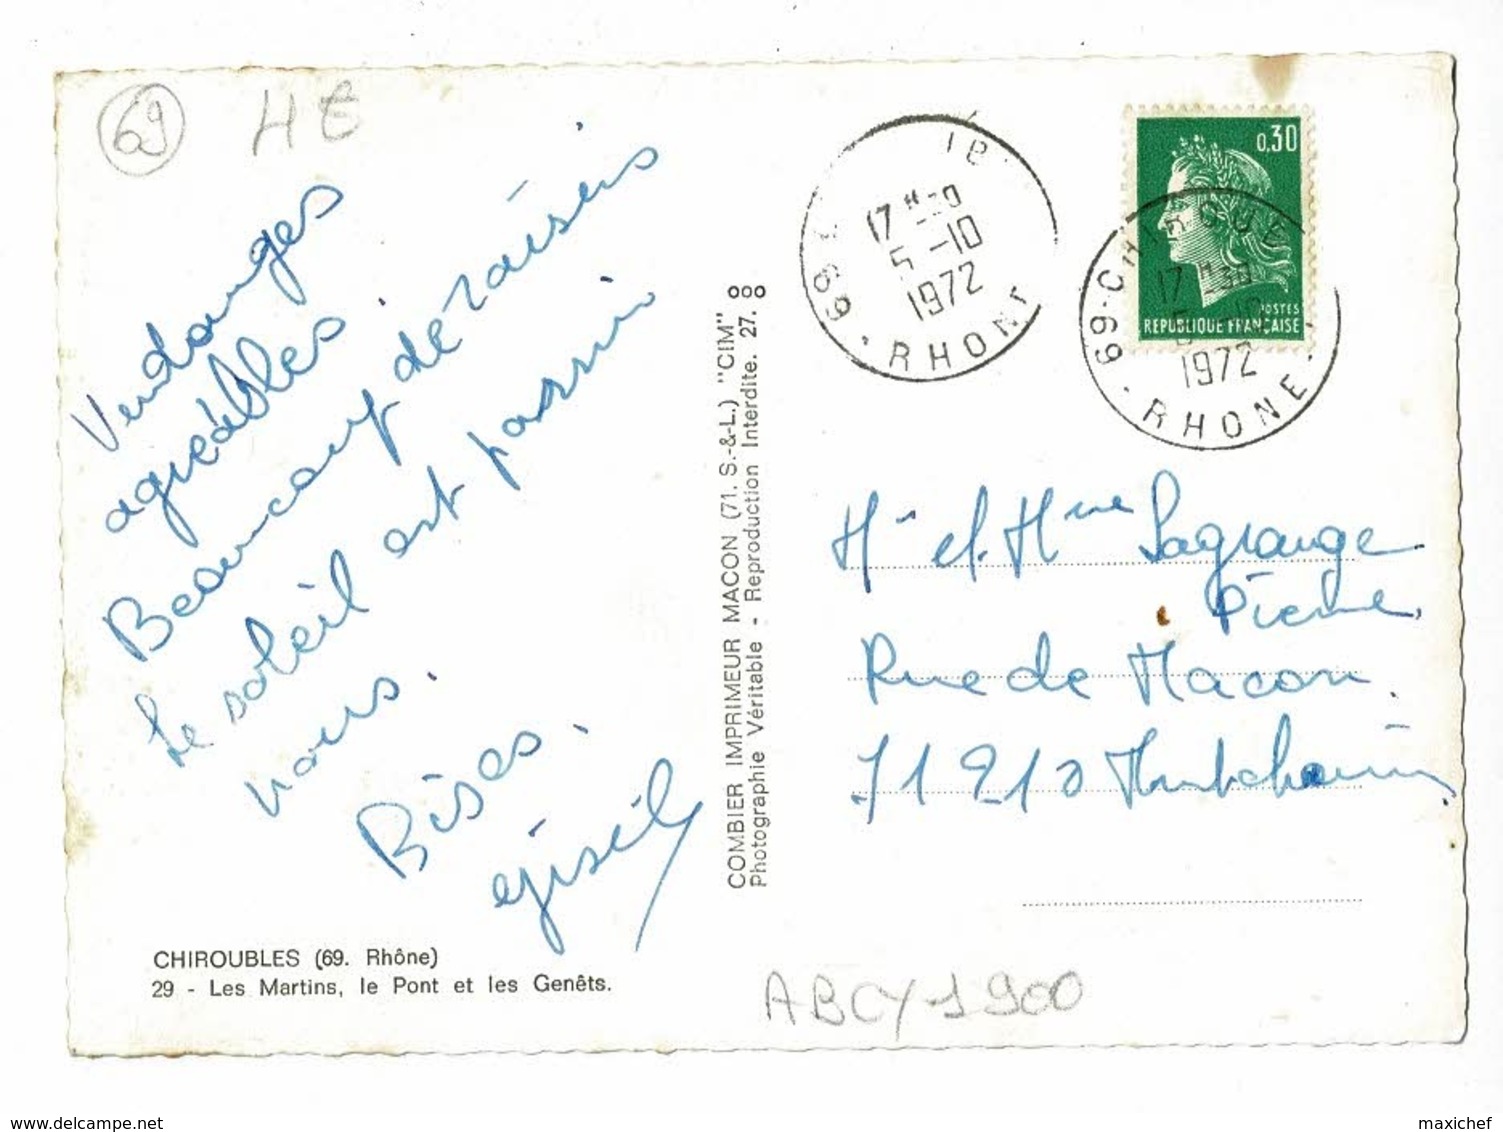 69 H€
Vendanges
agréables.
Beaucoup de raisins
Le soleil est parmi
nous.
Bises.
gisèle
CHIROUBLES (69. Rhône)
29 - Les Martins, le Pont et les Genêts.
COMBIER IMPRIMEUR MACON (71. S.-&-L.) "CIM"
Photographie Véritable - Reproduction Interdite. 27.
17 H 30
5 -10
1972
69 - RHONE
0,30
POSTES
REPUBLIQUE FRANÇAISE
69-CHIROUBLES
17 H 30
5 -10
1972
RHONE
Mr et Mme Lagrange
Pierre
Rue de Macon.
71910
ABCY1900
www.delcampe.net
maxichef